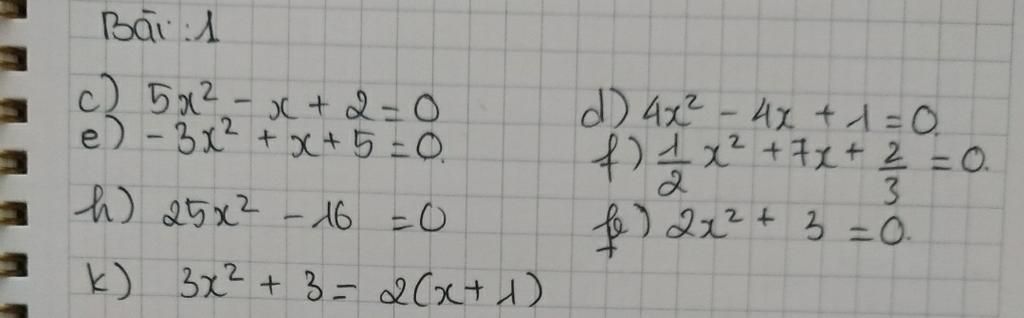 Bài: 1
c) 5x² - x + 2 = 0
d) 4x² - 4x + 1 = 0.
e) -3x² + x + 5 = 0.
f) 1/2 x² + 7x + 2/3 = 0.
h) 25x² - 16 = 0
) 2x² + 3 = 0.
k) 3x² + 3 = 2(x + 1)